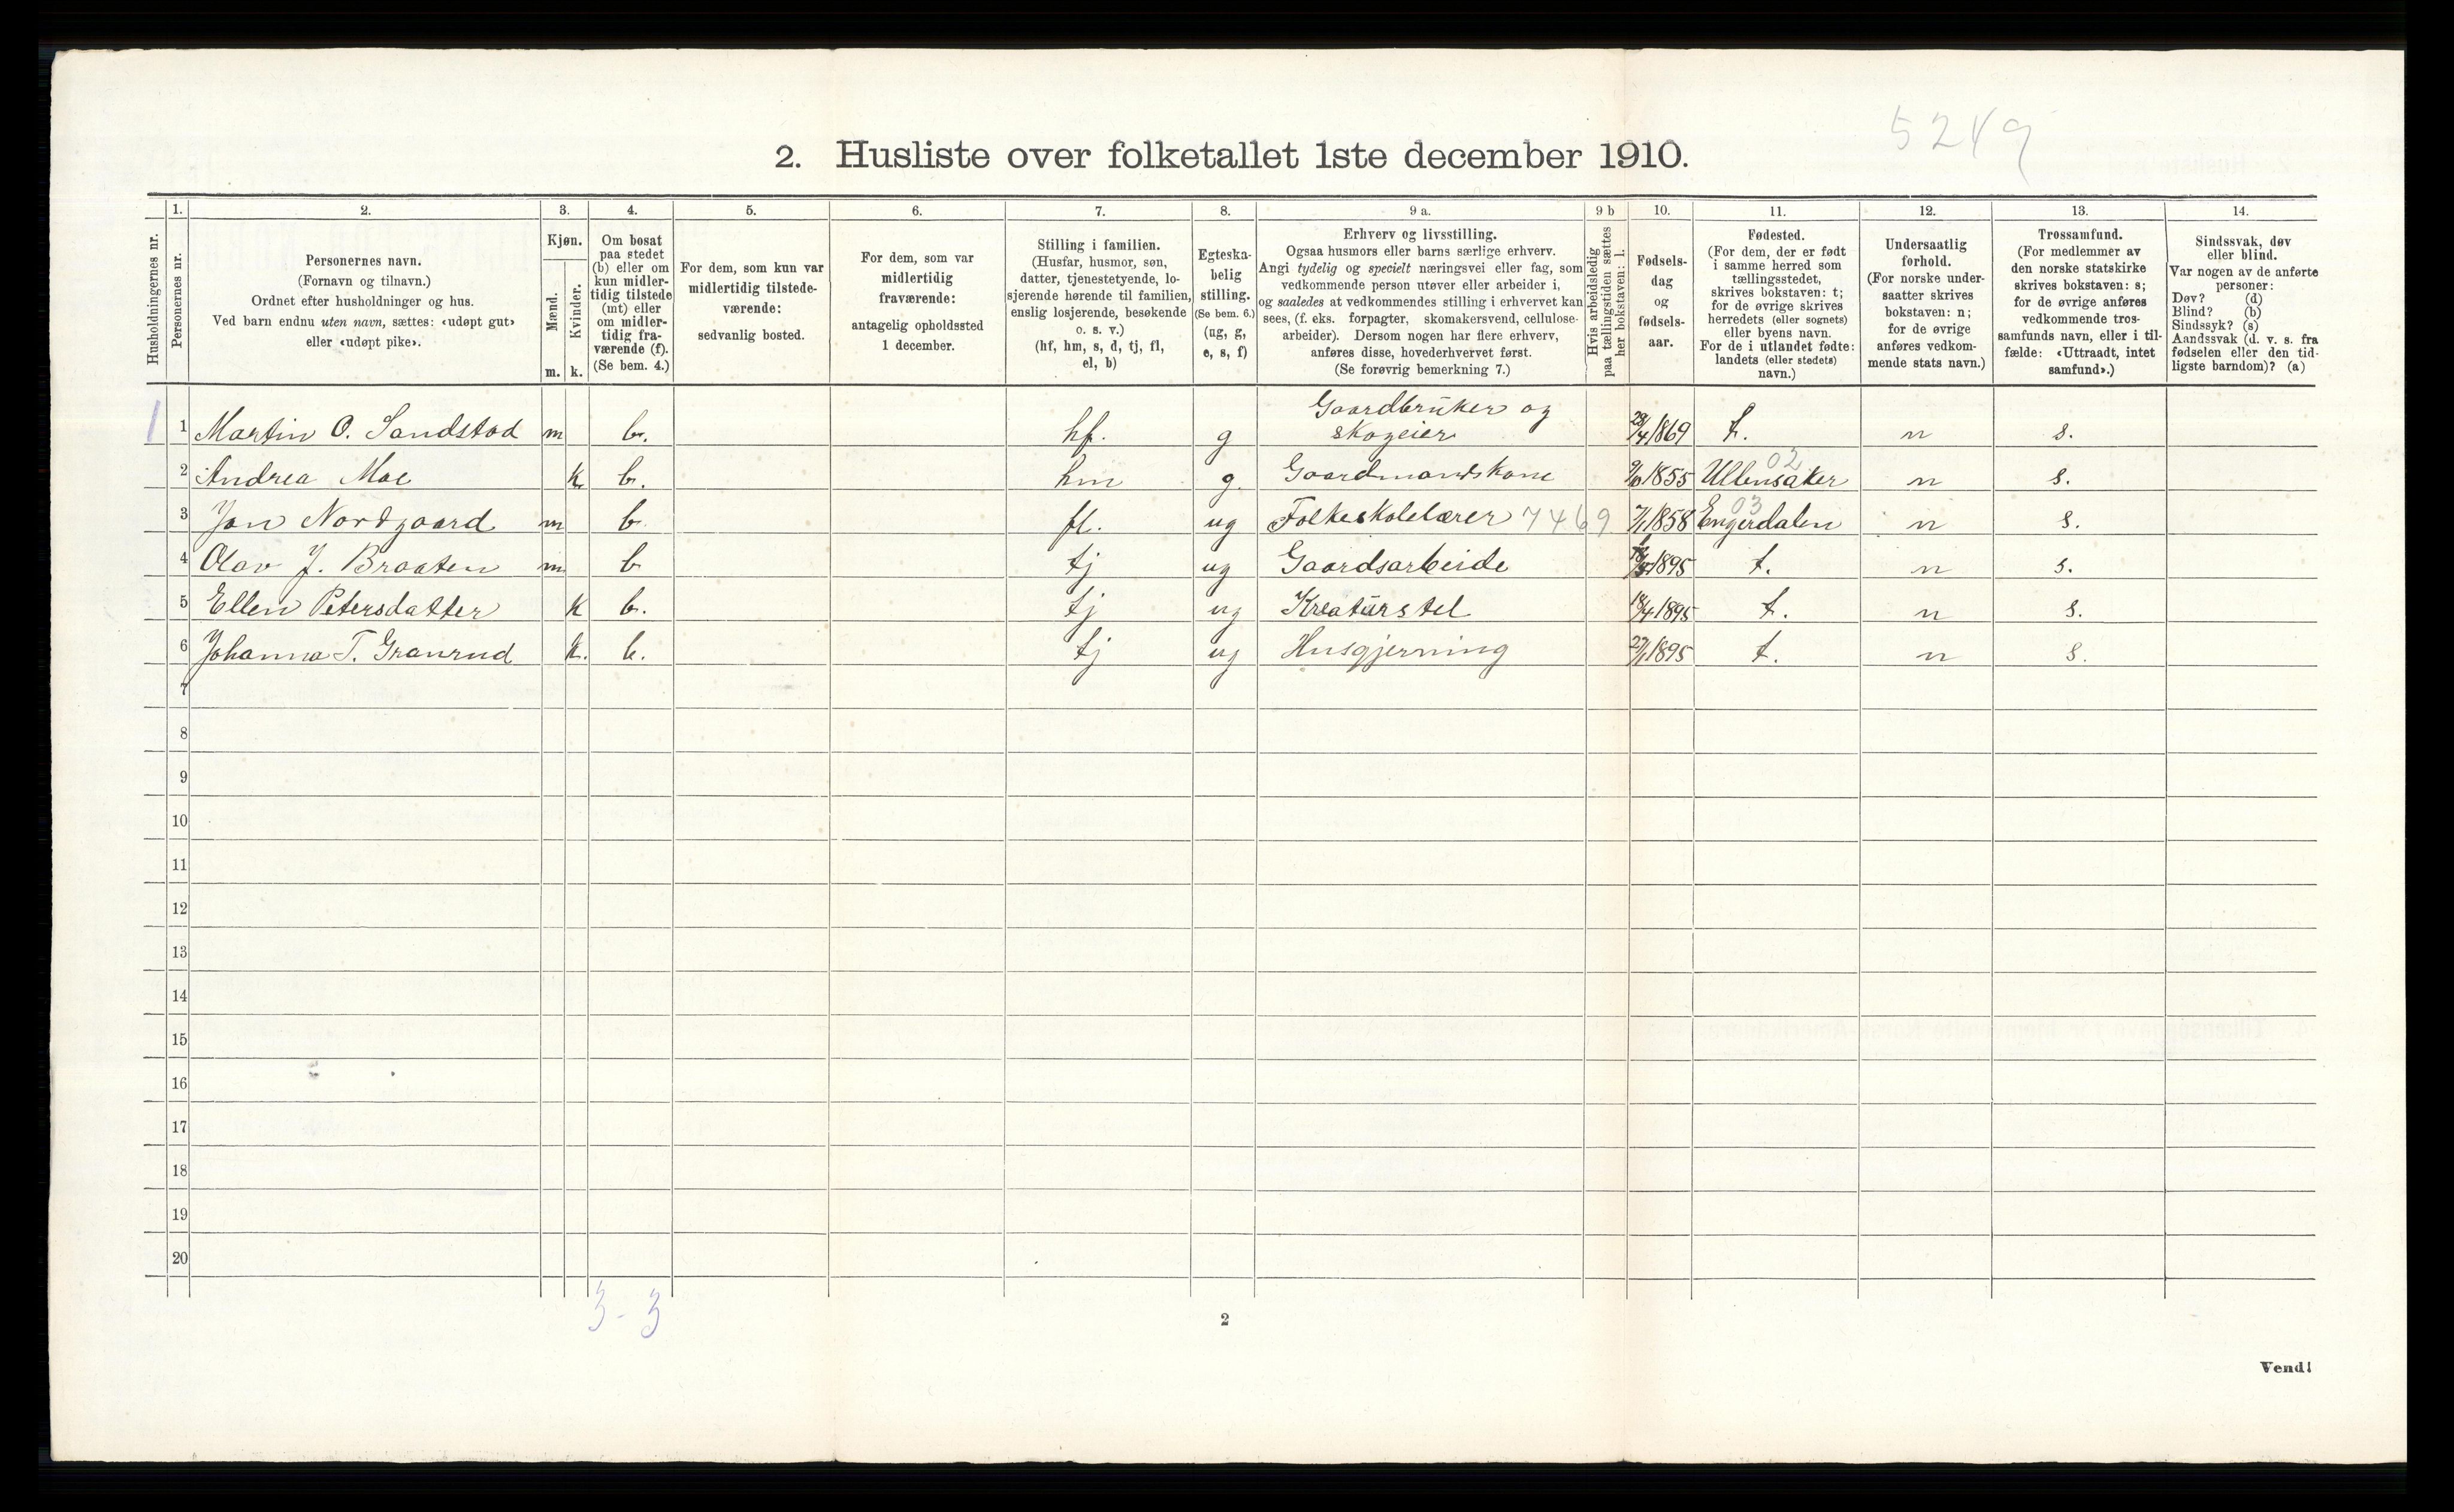 5249
2. Husliste over folketallet 1ste december 1910.
Husholdningernes nr.
1.
Personernes nr.
2.
Personernes navn.
(Fornavn og tilnavn.)
Ordnet efter husholdninger og hus.
Ved barn endnu uten navn, sættes: «udøpt gut»
eller «udøpt pike».
3.
Kjøn.
Mænd.
Kvinder.
m. k.
4.
Om bosat
paa stedet
(b) eller om
kun midler-
tidig tilstede
(mt) eller
om midler-
tidig fra-
værende (f).
(Se bem. 4.)
5.
For dem, som kun var
midlertidig tilstede-
værende:
sedvanlig bosted.
6.
For dem, som var
midlertidig
fraværende:
antagelig opholdssted
1 december.
7.
Stilling i familien.
(Husfar, husmor, søn,
datter, tjenestetyende, lo-
sjerende hørende til familien,
enslig losjerende, besøkende
o. s. v.)
(hf, hm, s, d, tj, fl,
el, b)
8.
Egteska-
belig
stilling.
(Se bem. 6.)
(ug, g,
e, s, f)
9 a.
Erhverv og livsstilling.
Ogsaa husmors eller barns særlige erhverv.
Angi tydelig og specielt næringsvei eller fag, som
vedkommende person utøver eller arbeider i,
og saaledes at vedkommendes stilling i erhvervet kan
sees, (f. eks. forpagter, skomakersvend, cellulose-
arbeider). Dersom nogen har flere erhverv,
anføres disse, hovederhvervet først.
(Se forøvrig bemerkning 7.)
9 b
Hvis arbeidsledig
paa tællingstiden sættes
her bokstaven: l.
10.
Fødsels-
dag
og
fødsels-
aar.
11.
Fødested.
(For dem, der er født
i samme herred som
tællingsstedet,
skrives bokstaven: t;
for de øvrige skrives
herredets (eller sognets)
eller byens navn.
For de i utlandet fødte:
landets (eller stedets)
navn.)
12.
Undersaatlig
forhold.
(For norske under-
saatter skrives
bokstaven: n;
for de øvrige
anføres vedkom-
mende stats navn.)
13.
Trossamfund.
(For medlemmer av
den norske statskirke
skrives bokstaven: s;
for de øvrige anføres
vedkommende tros-
samfunds navn, eller i til-
fælde: «Uttraadt, intet
samfund».)
14.
Sindssvak, døv
eller blind.
Var nogen av de anførte
personer:
Døv? (d)
Blind? (b)
Sindssyk? (s)
Aandssvak (d. v. s. fra
fødselen eller den tid-
ligste barndom)? (a)
1 1 Martin O. Sandstad m b. hf. g Gaardbruker og skogeier 29/4 1869 t. n s.
2 Andrea Moe k. b. hm g. Gaardmandskone 1855 Ullensaker 02 n s.
3 Jon Nordgaard m b. fl. ug Folkeskolelærer 7469 7/1 1858 Engerdalen 03 n s.
4 Olav J. Braaten m b tj ug Gaardsarbeide 1895 t. n s.
5 Ellen Petersdatter k b. tj ug Kreaturstel 18/4 1895 t. n s.
6 Johanna T. Granrud k. b. tj ug Husgjerning 27/1 1895 t. n s.
7
8
9
10
11
12
13
14
15
16
17
18
19
20
3-3
2
Vend!